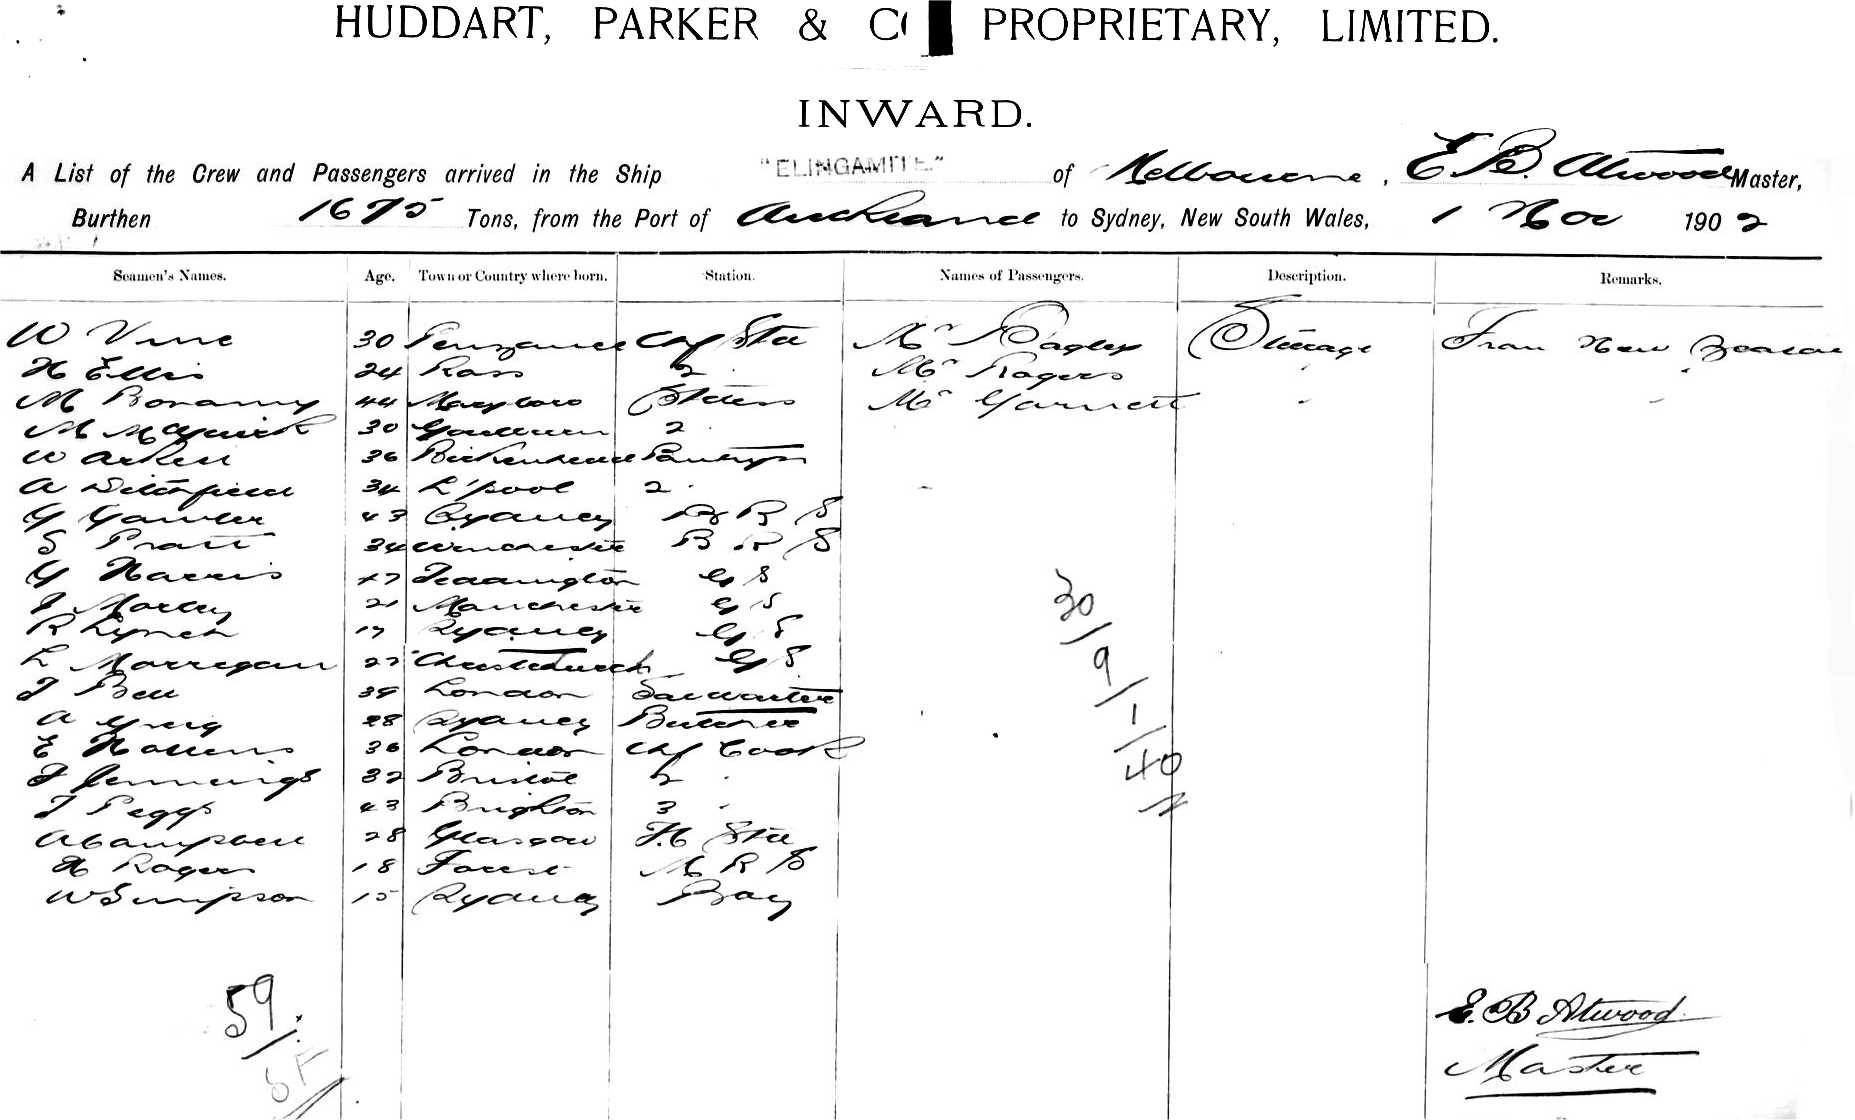 HUDDART, PARKER & CO PROPRIETARY, LIMITED.
INWARD.
A List of the Crew and Passengers arrived in the Ship "ELINGAMITE." of Melbourne, E. B. Atwood Master,
Burthen 1675 Tons, from the Port of Auckland to Sydney, New South Wales, 1 Nov 1902
Seamen's Names. Age. Town or Country where born. Station. Names of Passengers. Description. Remarks.
W Vine 30 Penzance Chf Stee Mr Bagley Steerage From New Zealand
H Ellis 24 Ross 2 " Mr Rogers " "
M Boramy 44 Maryboro Stdess Mr Garnett " "
M McGuirk 30 Goulburn 2 "
W Arkell 36 Birkenhead Pantryn
A Ditchfield 34 L'pool 2 "
G Gawler 43 Sydney B R S
S Pratt 34 Winchester B R S
G Harris 47 Teddington G S
J Morley 21 Manchester G S
R Lynch 17 Sydney G S
L Morregan 27 Christchurch G S
J Bell 39 London
A Greig 28 Sydney Butcher
E Hollens 36 London Chf Cook
J Jennings 32 Bristol 2 "
J Peggs 43 Brighton 3 "
A Campbell 28 Glasgow F.C Stee
H Rogers 18 Forest M R S
W Simpson 15 Sydney Boy
30/9/-/40
59.
E. B Atwood
Master